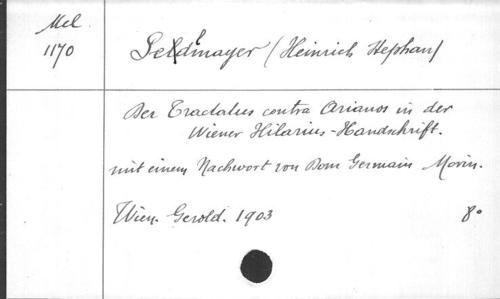 Mel.
1170
Sedlmayer (Heinrich Stephan)
Der Tractatus contra Arianos in der
Wiener Hilarius-Handschrift.
mit einem Nachwort von Dom Germain Morin.
Wien. Gerold. 1903 8°